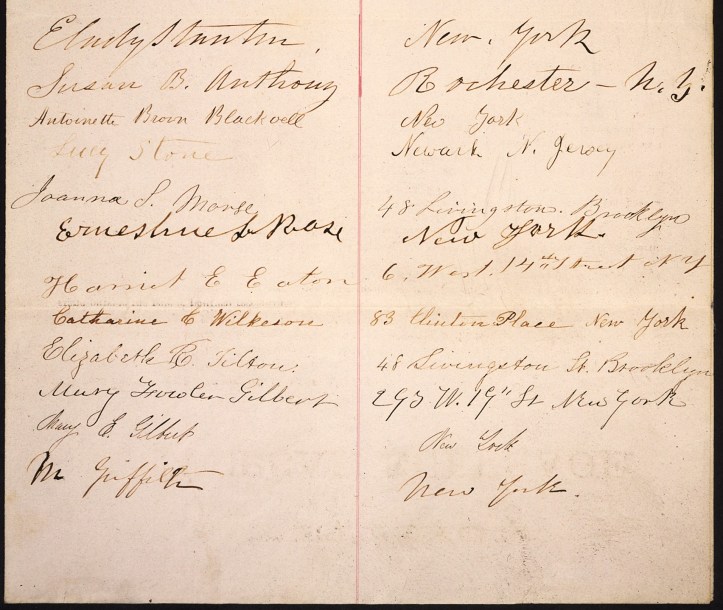 E Cady Stanton, New. York
Susan B. Anthony Rochester - N. Y.
Antoinette Brown Blackwell New York
Lucy Stone Newark N. Jersey
Joanna S. Morse 48 Livingston. Brooklyn
Ernestine L Rose New York.
Harriet E Eaton 6. West. 14th Street N Y
Catharine C Wilkeson 83 Clinton Place New York
Elizabeth R. Tilton. 48 Livingston St. Brooklyn
Mary Fowler Gilbert 293 W. 19" St New York
Mary E. Gilbert New York
M Griffith New York.